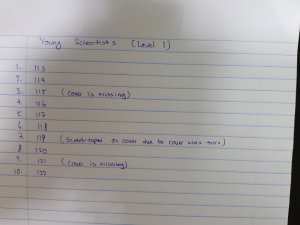 Young Scientists (Level 1)
1. 113
2. 114
3. 115 (cover is missing)
4. 116
5. 117
6. 118
7. 119 (Scotch-taped on cover due to cover was torn)
8. 120
9. 121 (cover is missing)
10. 122